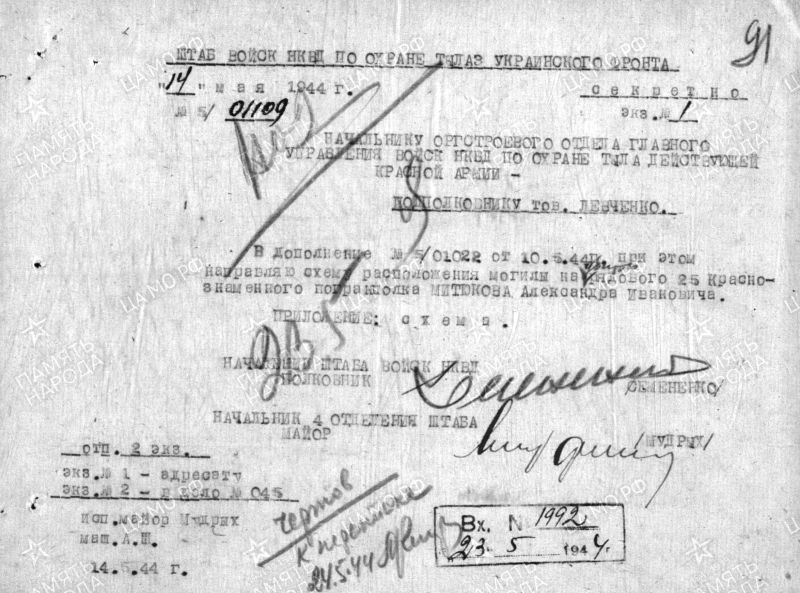 91
ШТАБ ВОЙСК НКВД ПО ОХРАНЕ ТЫЛА3 УКРАИНСКОГО ФРОНТА
"14" мая 1944 г.
секретно
№ 5/ 01109
экз.№ 1
НАЧАЛЬНИКУ ОРГСТРОЕВОГО ОТДЕЛА ГЛАВНОГО
УПРАВЛЕНИЯ ВОЙСК НКВД ПО ОХРАНЕ ТЫЛА ДЕЙСТВУЮЩЕЙ
КРАСНОЙ АРМИИ -
ПОДПОЛКОВНИКУ тов. ЛЕВЧЕНКО.
В дополнение № 5/01022 от 10.5.44г. при этом
направляю схему расположения могилы на рядового 25 Красно-
знаменного погранполка МИТЮКОВА Александра Ивановича.
ПРИЛОЖЕНИЕ: схема.
НАЧАЛЬНИК ШТАБА ВОЙСК НКВД
ПОЛКОВНИК
/СЕМЕНЕНКО/
НАЧАЛЬНИК 4 ОТДЕЛЕНИЯ ШТАБА
МАЙОР
/МУДРЫХ/
отп. 2 экз.
экз.№ 1 - адресату
экз.№ 2 - в дело № 045
исп.майор Мудрых
маш.А.Ш.
14.5.44 г.
чертов
к переписке
24.5.44
Вх. № 1992
23. 5 1944г.